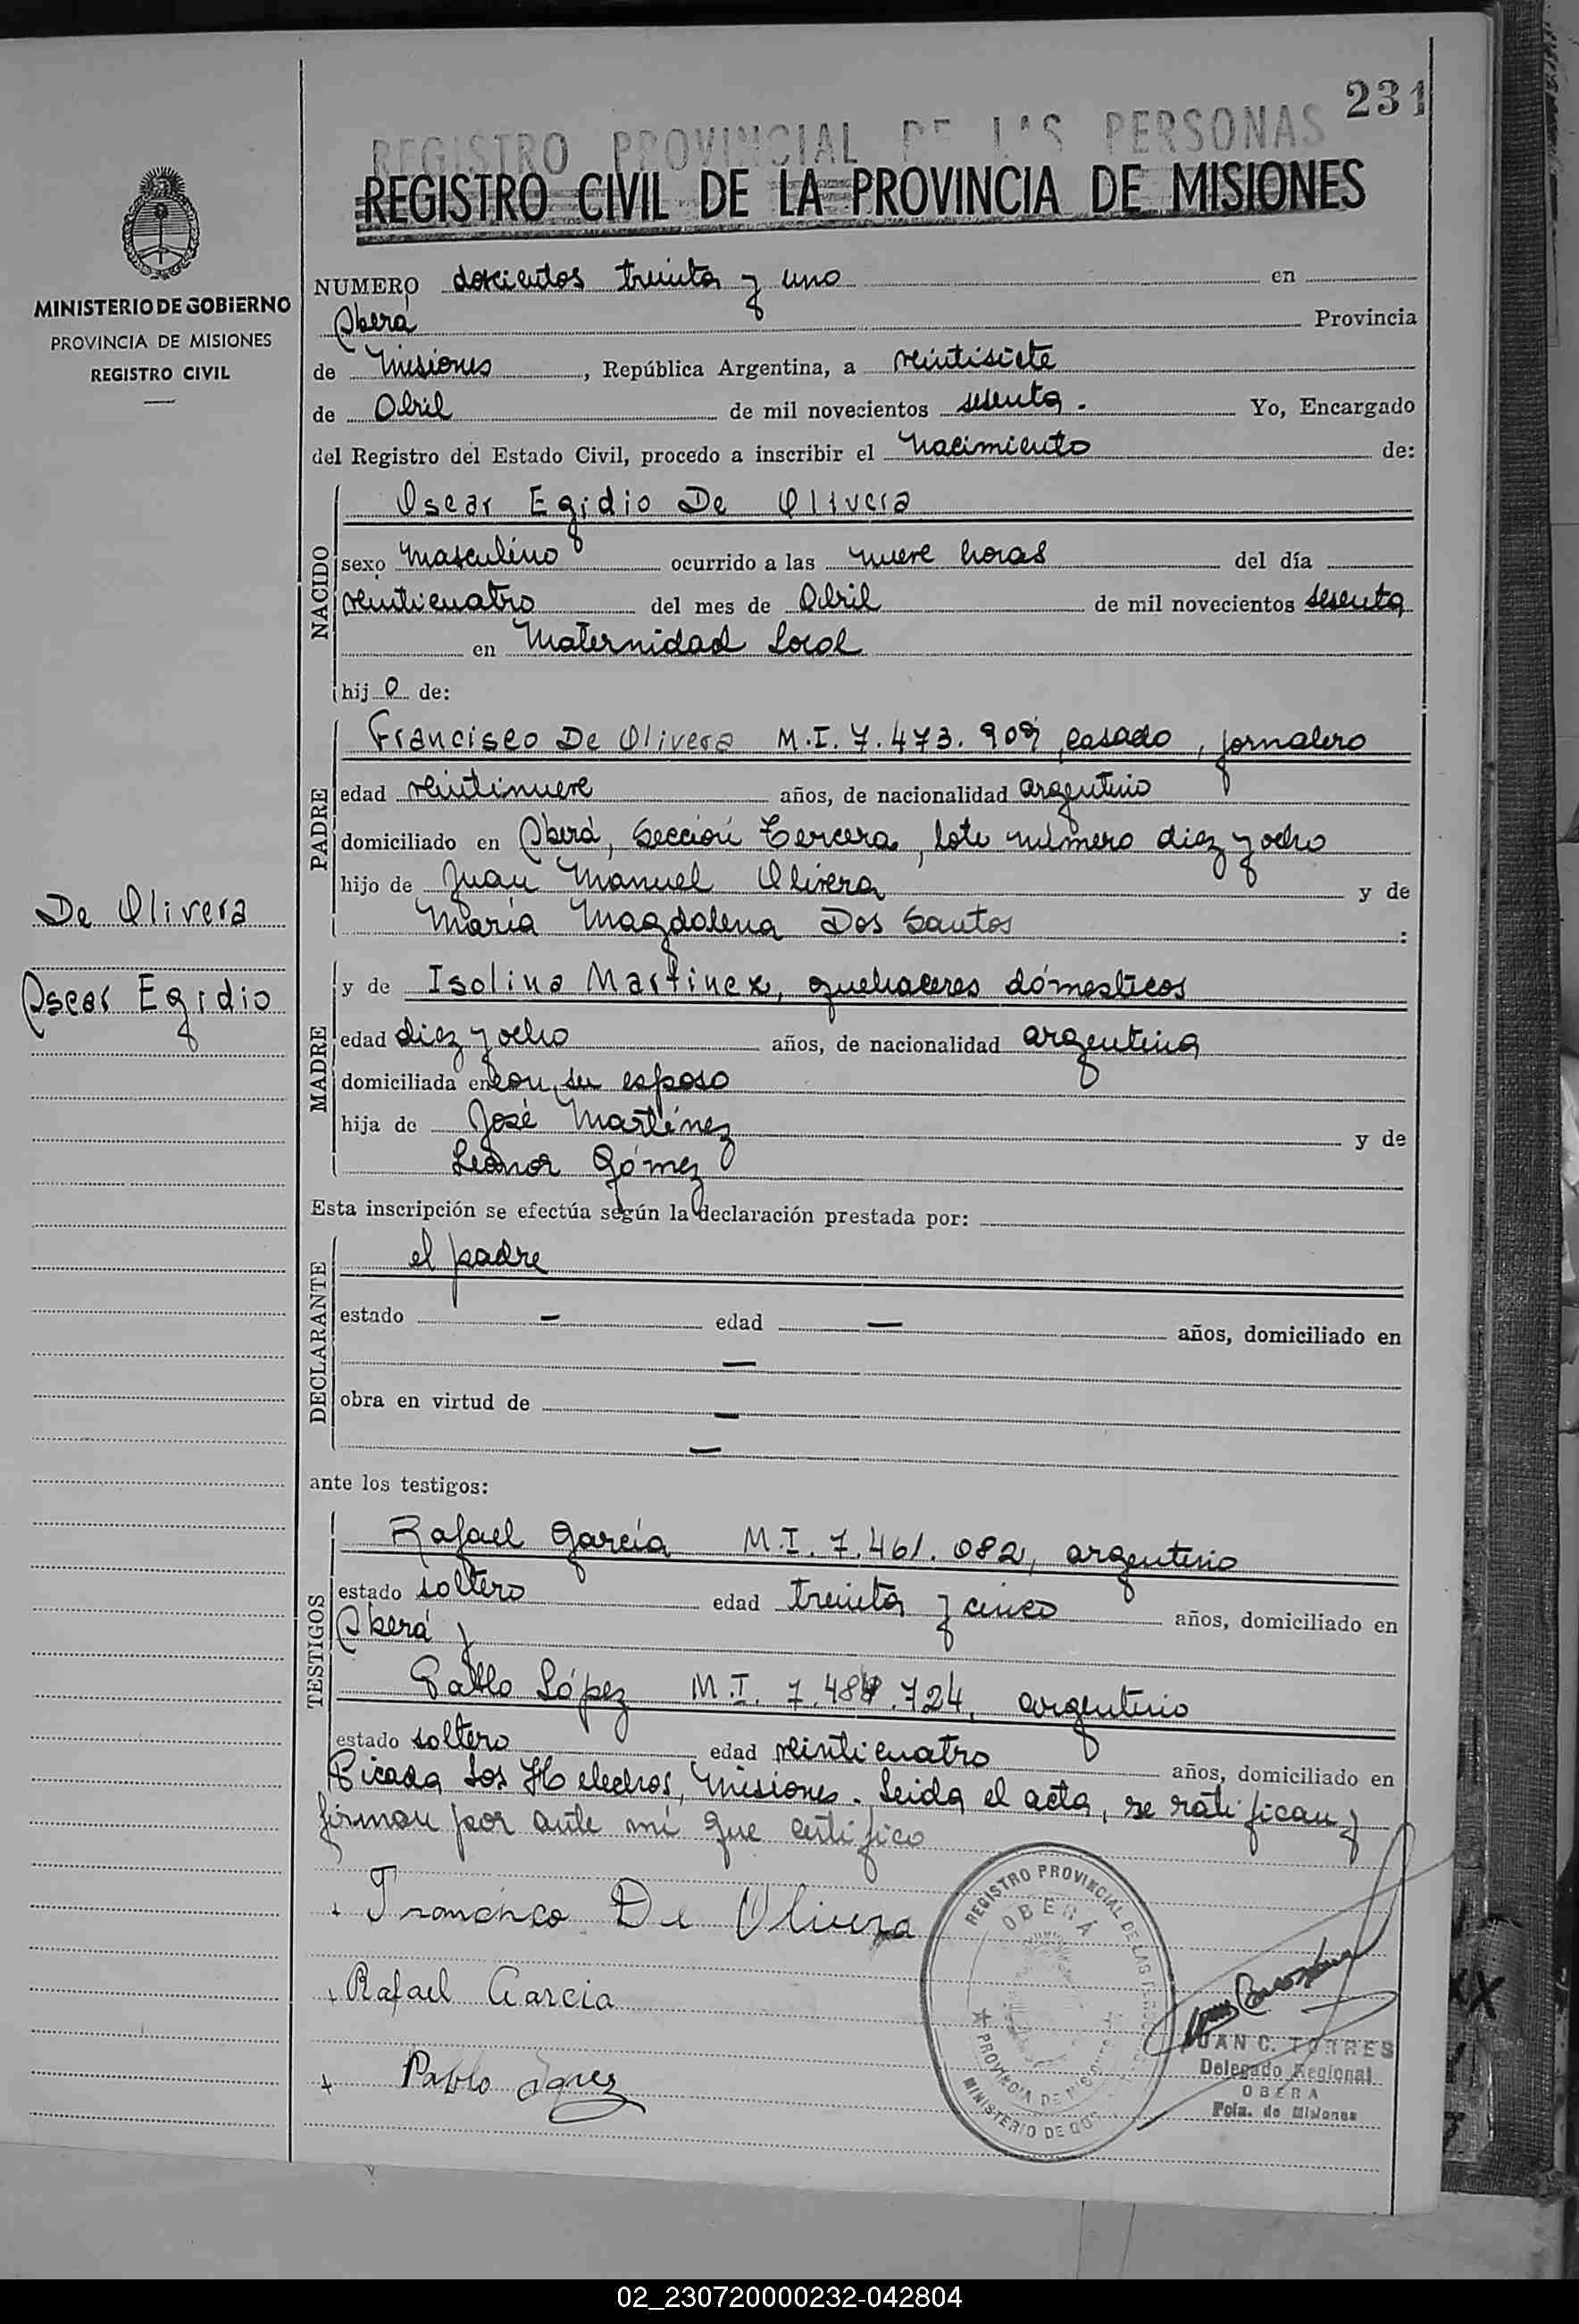 231
REGISTRO PROVINCIAL DE LAS PERSONAS
REGISTRO CIVIL DE LA PROVINCIA DE MISIONES
MINISTERIO DE GOBIERNO
PROVINCIA DE MISIONES
REGISTRO CIVIL
NUMERO doscientos treinta y uno en
Oberá Provincia
de Misiones, República Argentina, a veintisiete
de Abril de mil novecientos sesenta. Yo, Encargado
del Registro del Estado Civil, procedo a inscribir el nacimiento de:
NACIDO
Oscar Egidio De Olivera
sexo masculino ocurrido a las nueve horas del día
veinticuatro del mes de Abril de mil novecientos sesenta
en Maternidad Local
hijo de:
PADRE
Francisco De Olivera M.I. 7.473.909, casado, jornalero
edad veintinueve años, de nacionalidad argentino
domiciliado en Oberá, Sección Tercera, lote número diez y ocho
hijo de Juan Manuel Olivera y de
María Magdalena Dos Santos :
De Olivera
Oscar Egidio
MADRE
y de Isolina Martinez, quehaceres dómesticos
edad diez y ocho años, de nacionalidad argentina
domiciliada en con su esposo
hija de José Martínez y de
Leonor Gómez
Esta inscripción se efectúa según la declaración prestada por:
DECLARANTE
el padre
estado — edad — años, domiciliado en
—
obra en virtud de —
—
ante los testigos:
TESTIGOS
Rafael García M.I. 7.461.082, argentino
estado soltero edad treinta y cinco años, domiciliado en
Oberá y
Pablo López M.I. 7.484.724, argentino
estado soltero edad veinticuatro años, domiciliado en
Picada Los Helechos, Misiones. Leida el acta, se ratifican y
firman por ante mí que certifico
Francisco De Olivera
Rafael Garcia
Pablo Lopez
REGISTRO PROVINCIAL DE LAS PERSONAS
OBERÁ
PROVINCIA DE MISIONES
MINISTERIO DE GOB
JUAN C. TORRES
Delegado Regional
OBERA
Pcia. de Misiones
02_230720000232-042804